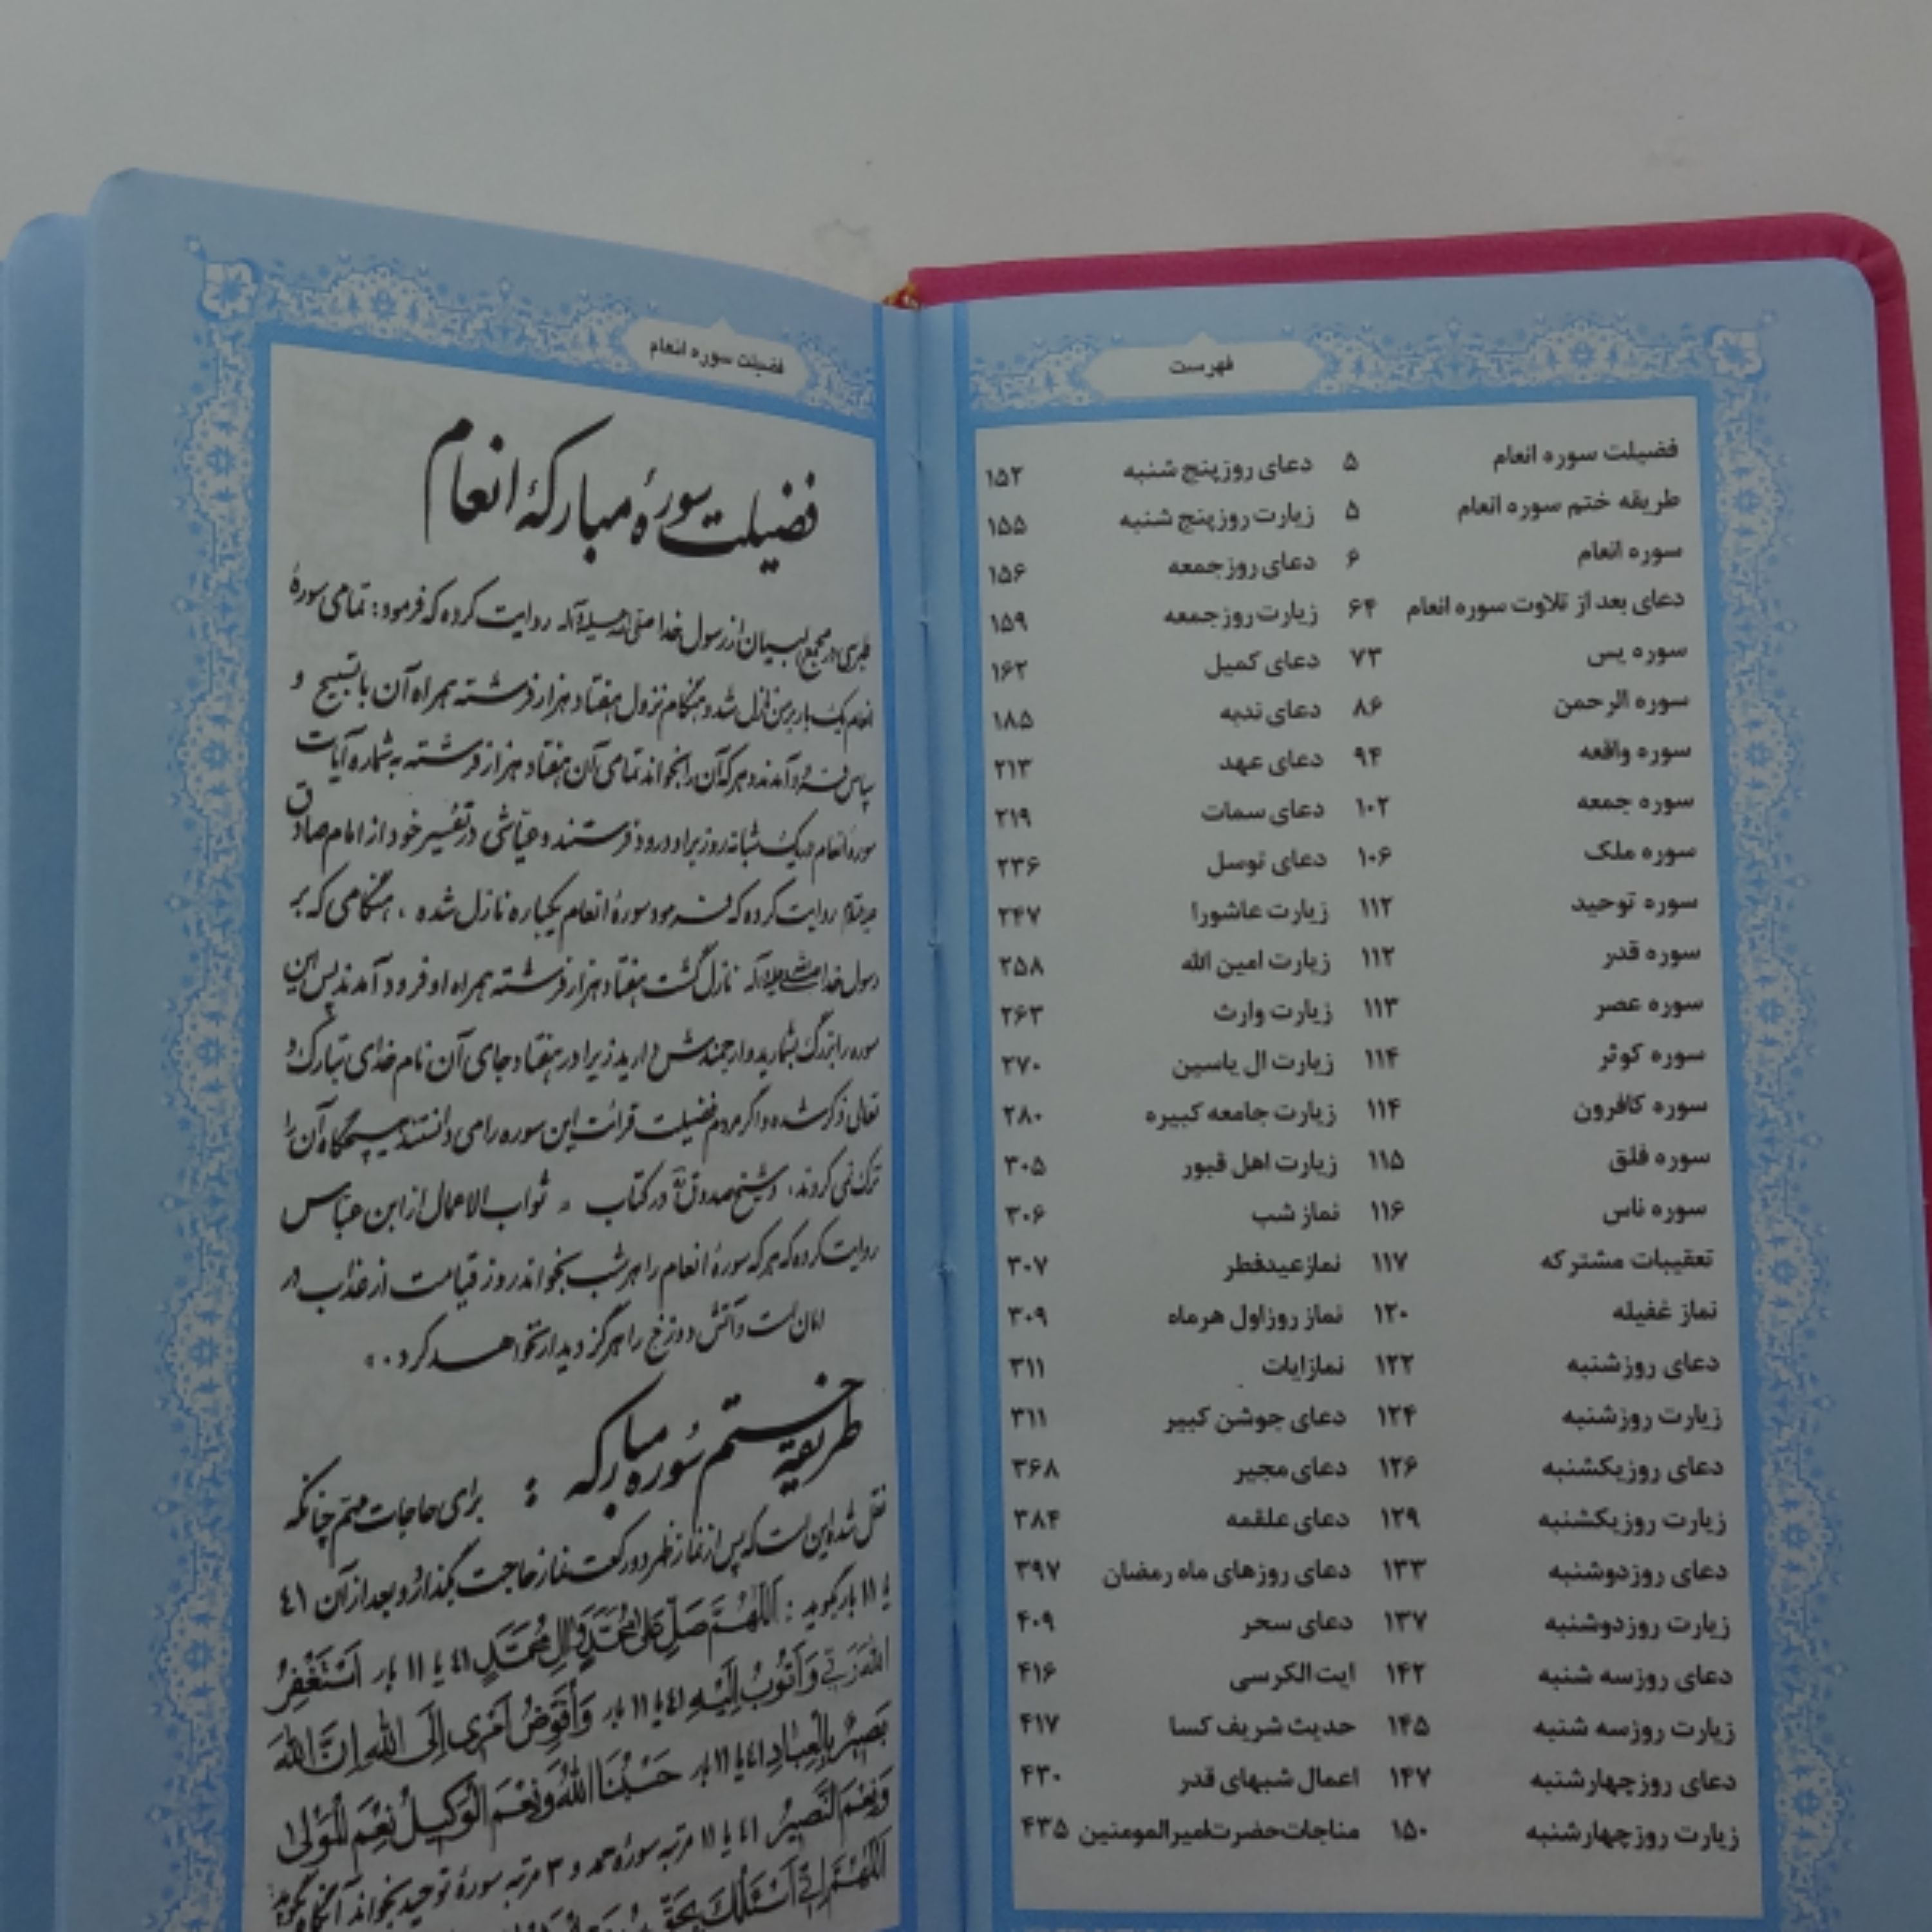 فهرست
فضیلت سوره انعام ۵
طریقه ختم سوره انعام ۵
سوره انعام ۶
دعای بعد از تلاوت سوره انعام ۶۴
سوره یس ۷۳
سوره الرحمن ۸۶
سوره واقعه ۹۴
سوره جمعه ۱۰۲
سوره ملک ۱۰۶
سوره توحید ۱۱۲
سوره قدر ۱۱۲
سوره عصر ۱۱۳
سوره کوثر ۱۱۴
سوره کافرون ۱۱۴
سوره فلق ۱۱۵
سوره ناس ۱۱۶
تعقیبات مشترکه ۱۱۷
نماز غفیله ۱۲۰
دعای روزشنبه ۱۲۲
زیارت روزشنبه ۱۲۴
دعای روزیکشنبه ۱۲۶
زیارت روزیکشنبه ۱۲۹
دعای روزدوشنبه ۱۳۳
زیارت روزدوشنبه ۱۳۷
دعای روزسه شنبه ۱۴۲
زیارت روزسه شنبه ۱۴۵
دعای روزچهارشنبه ۱۴۷
زیارت روزچهارشنبه ۱۵۰
دعای روزپنج شنبه ۱۵۲
زیارت روزپنج شنبه ۱۵۵
دعای روزجمعه ۱۵۶
زیارت روزجمعه ۱۵۹
دعای کمیل ۱۶۲
دعای ندبه ۱۸۵
دعای عهد ۲۱۳
دعای سمات ۲۱۹
دعای توسل ۲۳۶
زیارت عاشورا ۲۴۷
زیارت امین الله ۲۵۸
زیارت وارث ۲۶۳
زیارت ال یاسین ۲۷۰
زیارت جامعه کبیره ۲۸۰
زیارت اهل قبور ۳۰۵
نماز شب ۳۰۶
نمازعیدفطر ۳۰۷
نماز روزاول هرماه ۳۰۹
نمازایات ۳۱۱
دعای جوشن کبیر ۳۱۱
دعای مجیر ۳۶۸
دعای علقمه ۳۸۴
دعای روزهای ماه رمضان ۳۹۷
دعای سحر ۴۰۹
ایت الکرسی ۴۱۶
حدیث شریف کسا ۴۱۷
اعمال شبهای قدر ۴۳۰
مناجات حضرت امیرالمومنین ۴۳۵
فضیلت سوره انعام
فضیلت سورهٔ مبارکهٔ انعام
طبرسی در مجمع البیان از رسول خدا صلی الله علیه و آله روایت کرده که فرمود: تمامی سورهٔ
انعام یک بار بر من نازل شد و هنگام نزول هفتاد هزار فرشته همراه آن با تسبیح و
سپاس فرود آمدند و هر که آن را بخواند تمامی آن هفتاد هزار فرشته به شماره آیات
سوره انعام در یک شبانه روز بر او درود فرستند و عیاشی در تفسیر خود از امام صادق
علیه السلام روایت کرده که فرمود سورهٔ انعام یکباره نازل شده ، هنگامی که بر
رسول خدا صلی الله علیه و آله نازل گشت هفتاد هزار فرشته همراه او فرود آمدند پس این
سوره را بزرگ بشمارید و ارجمندش دارید زیرا در هفتاد جای آن نام خدای تبارک و
تعالی ذکر شده و اگر مردم فضیلت قرائت این سوره را می دانستند هیچگاه آن را
ترک نمی کردند. و شیخ صدوق در کتاب ثواب الاعمال از ابن عباس
روایت کرده که هر که سورهٔ انعام را هر شب بخواند روز قیامت از عذاب در
امان است و آتش دوزخ را هرگز دیدار نخواهد کرد.»
طریقهٔ ختم سوره مبارکه : برای حاجات مهم چنانکه
نقل شده این است که پس از نماز ظهر دو رکعت نماز حاجت بگذارد و بعد از آن ٤١
یا ١١ بار بگوید: اَللّهُمَّ صَلِّ عَلی مُحَمَّدٍ وَ الِ مُحَمَّدٍ ٤١ یا ١١ بار اَسْتَغْفِرُ
اللهَ رَبّی وَ اَتُوبُ اِلَیْهِ ٤١ یا ١١ بار وَ اُفَوِّضُ اَمْری اِلَی اللهِ اِنَّ اللهَ
بَصیرٌ بِالْعِبادِ ٤١ یا ١١ بار حَسْبُنَا اللهُ وَ نِعْمَ الْوَکیلُ نِعْمَ الْمَوْلی
وَ نِعْمَ النَّصیرُ ٤١ یا ١١ مرتبه سورهٔ حمد و ٣ مرتبه سورهٔ توحید بخواند آنگاه بگوید
اَللّهُمَّ اِنّی اَسْئَلُکَ بِحَقِّ